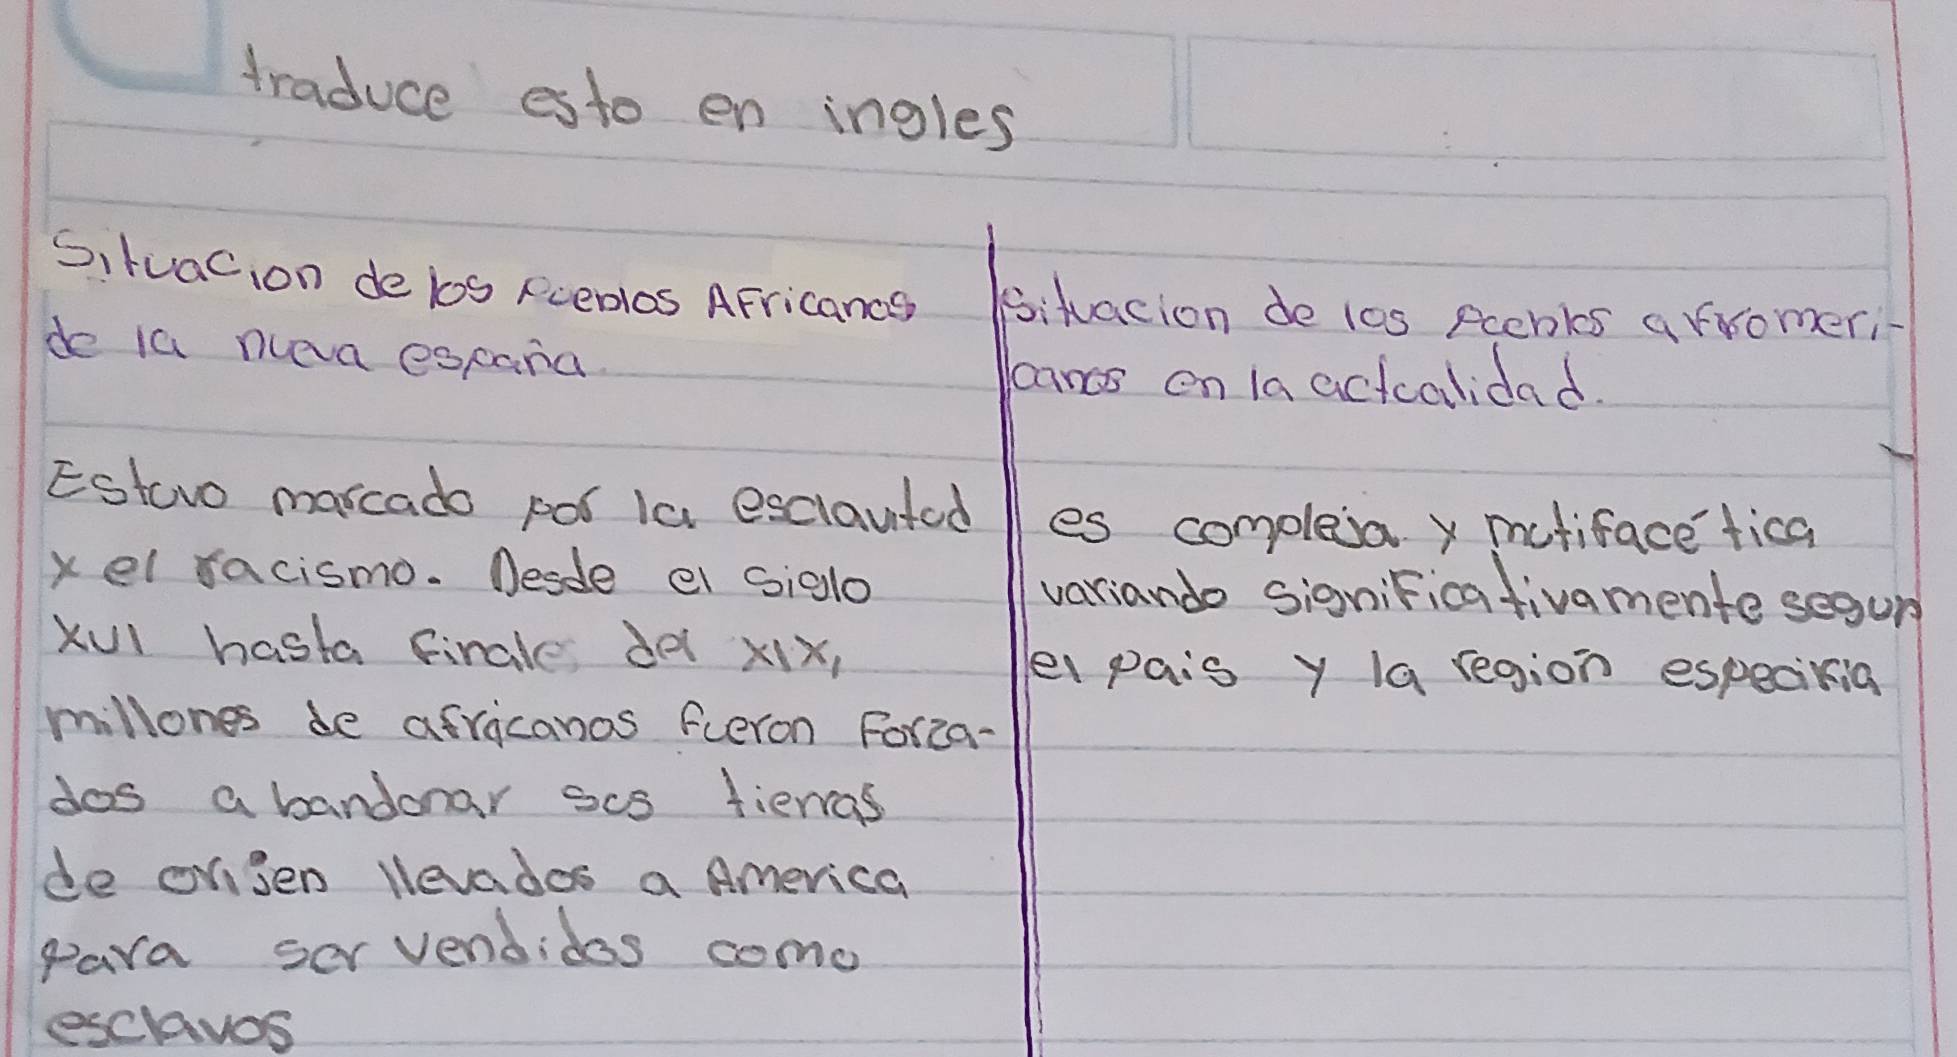 traduce esto en ingles
Situacion de los Pueblos Africanos
de la nueva españa
Estuvo marcado por la esclavitud
y el racismo. Desde el siglo
XVI hasta finales del XIX,
millones de africanos fueron Forza-
dos a bandonar sus tierras
de orijen llevados a America
para ser vendidos como
esclavos
situacion de los Pueblos afromeri-
canos en la actualidad.
es compleja y mutifacética
variando significativamente segun
el pais y la region especifia